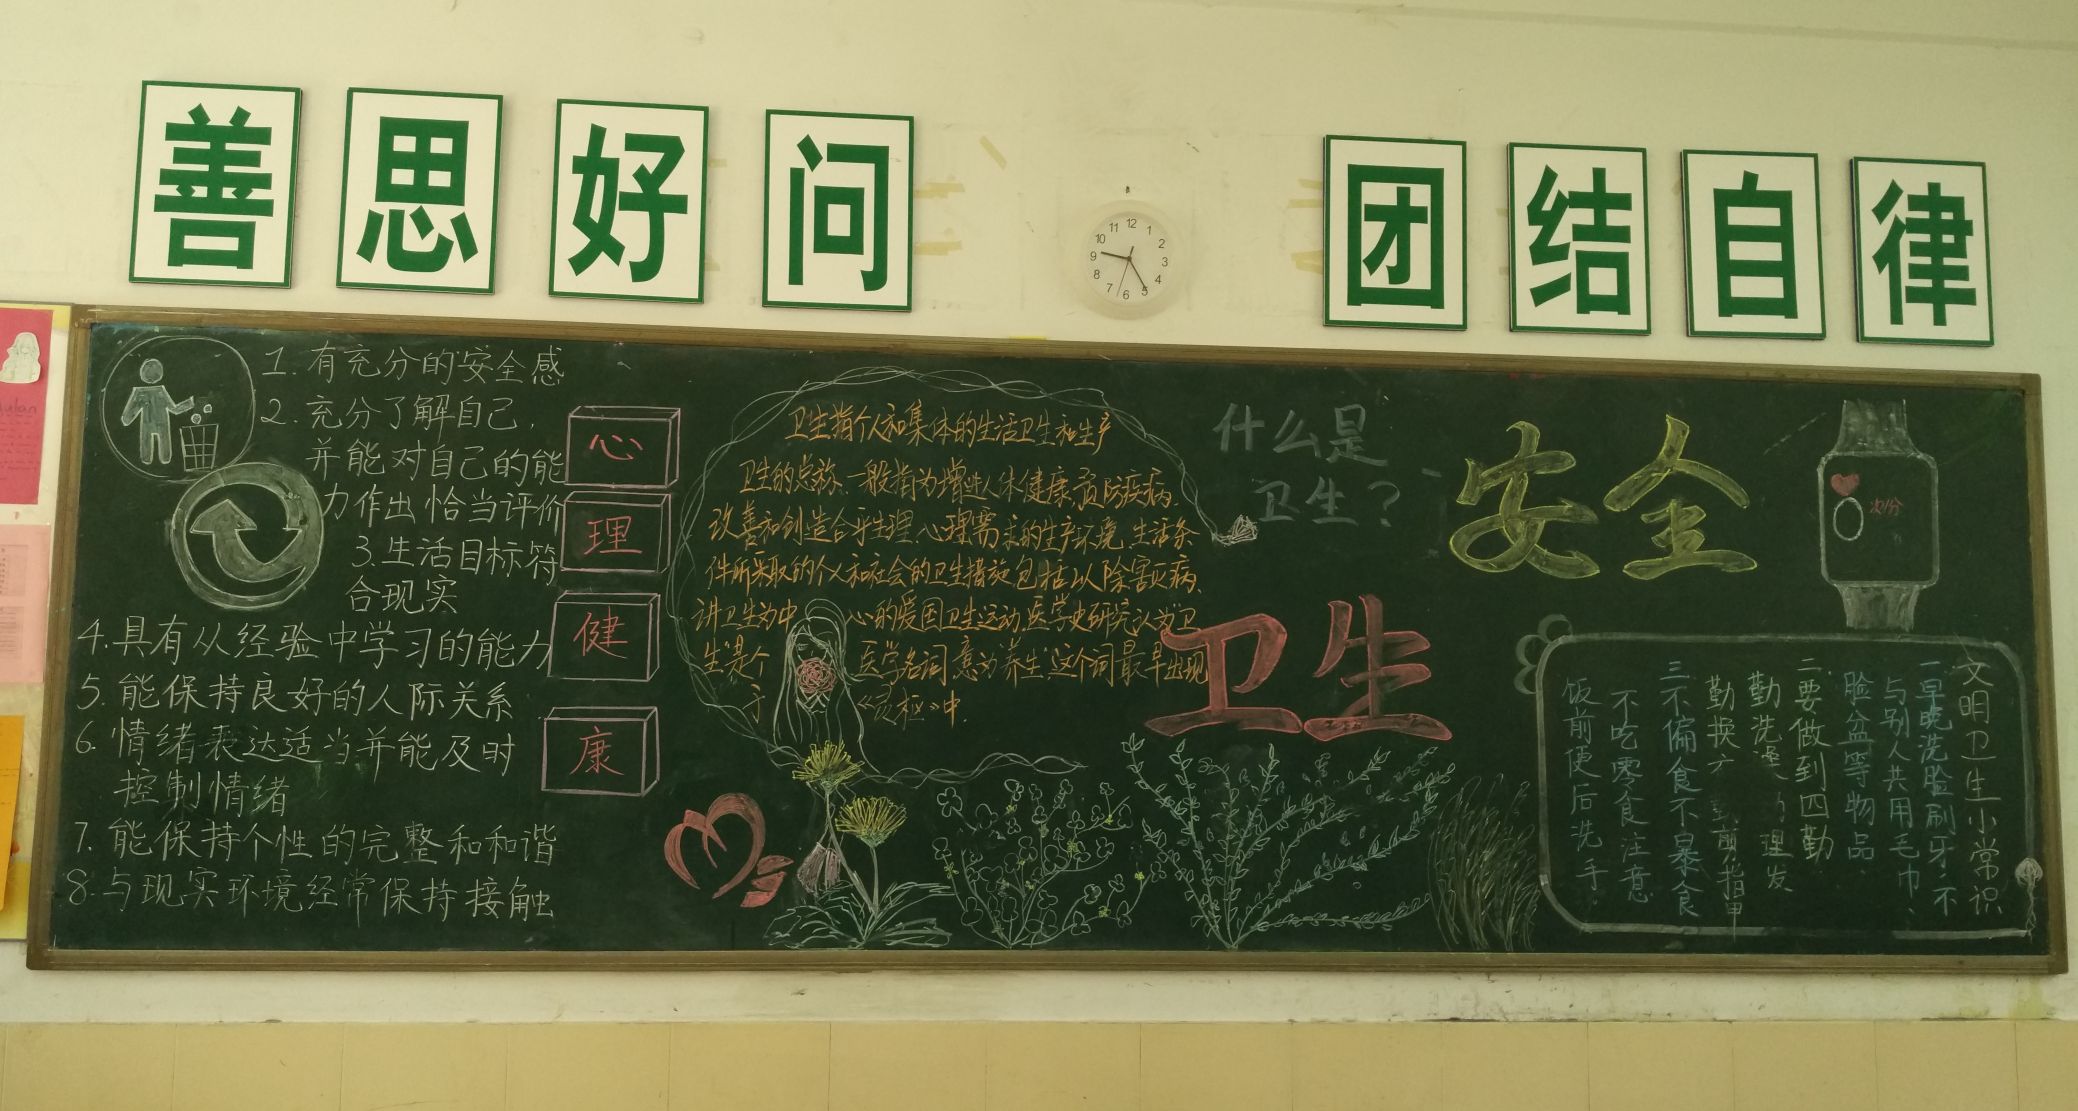 善思好问
团结自律
12
1
2
3
4
5
6
7
8
9
10
11
1.有充分的安全感
2.充分了解自己,
并能对自己的能
力作出恰当评价
3.生活目标符
合现实
4.具有从经验中学习的能力
5.能保持良好的人际关系
6.情绪表达适当并能及时
控制情绪
7.能保持个性的完整和和谐
8.与现实环境经常保持接触
心
理
健
康
卫生指个人和集体的生活卫生和生产
卫生的总称、一般指为增进人体健康,预防疾病,
改善和创造合乎生理、心理需求的生产环境、生活条
件所采取的个人和社会的卫生措施包括以除害灭病、
讲卫生为中心的爱国卫生运动,医学史研究认为"卫
生"是个医学名词,意为"养生",这个词最早出现
于《灵枢》中.
什么是
卫生?
安全
卫生
次/分
文明卫生小常识
一早晚洗脸刷牙,不
与别人共用毛巾、
脸盆等物品.
二要做到四勤
勤洗澡 理发
勤换 剪指甲
三不偏食不暴食
不吃零食注意
饭前便后洗手.